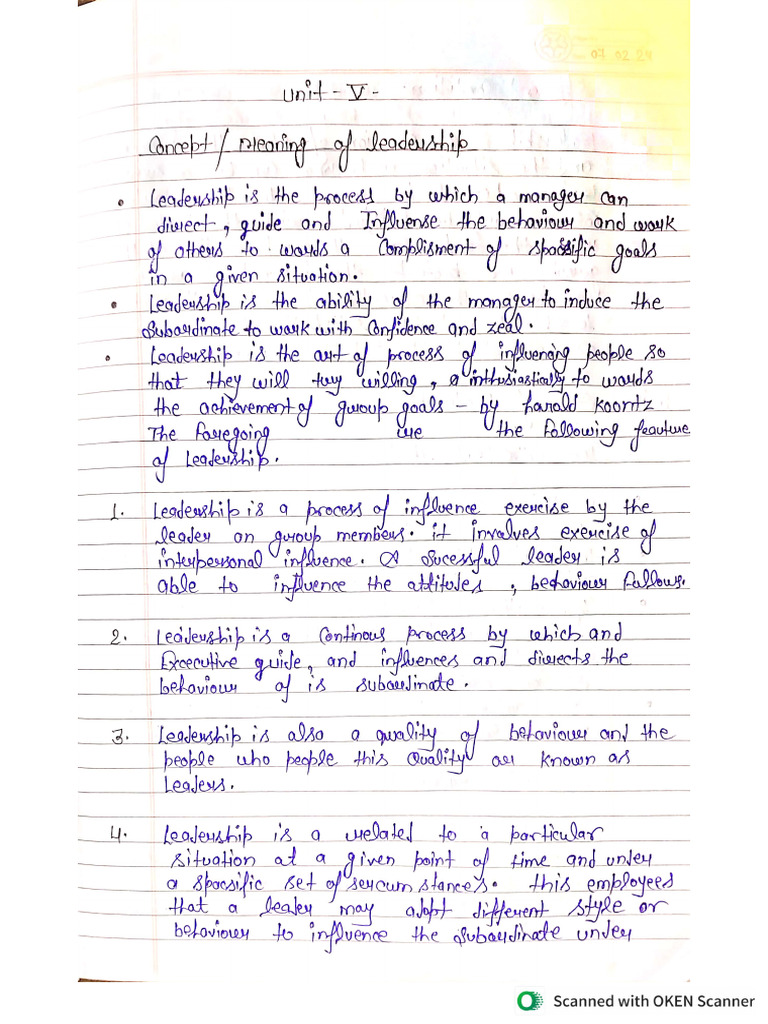 07 02 24
Unit - V -
Concept / Meaning of leadership
• Leadership is the process by which a manager can
direct, guide and Influense the behaviour and work
of others to wards a Complisment of spacific goals
in a given situation.
• Leadership is the ability of the manager to induce the
Subardinate to work with Confidence and zeal.
• Leadership is the art of process of influencing people so
that they will try willing, a inthusiastically to wards
the achievement of group goals - by harald Koontz
The Foregoing the following feauture
of Leadership.
1. Leadership is a process of influence exercise by the
leader on group members. it involves exercise of
interpersonal influence. A sucessful leader is
able to influence the attitules, behaviour follows.
2. Leadership is a Continous process by which and
Excecutive guide, and influences and directs the
behaviour of is subardinate.
3. Leadership is also a quality of behaviour and the
people who people this Quality are known as
Leaders.
4. Leadership is a related to a particular
situation at a given point of time and under
a spacsific set of sercum stances. this employees
that a leader may adopt different style or
behaviour to influence the subardinate under
Scanned with OKEN Scanner